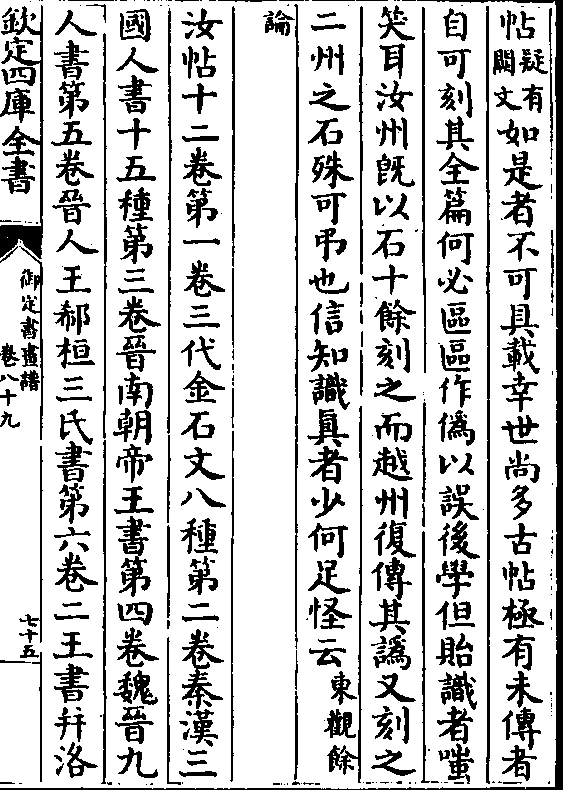 帖疑有闕文如是者不可具載幸世尚多古帖極有未傳者
自可刻其全篇何必區區作僞以誤後學但貽識者嗤
笑耳汝州旣以石十餘刻之而越州復傳其譌又刻之
二州之石殊可弔也信知識眞者少何足怪云東觀餘
論
汝帖十二卷第一卷三代金石文八種第二卷秦漢三
國人書十五種第三卷晉南朝帝王書第四卷魏晉九
人書第五卷晉人王郗桓三氏書第六卷二王書幷洛
欽定四庫全書
御定書畫譜
卷八十九
七十五